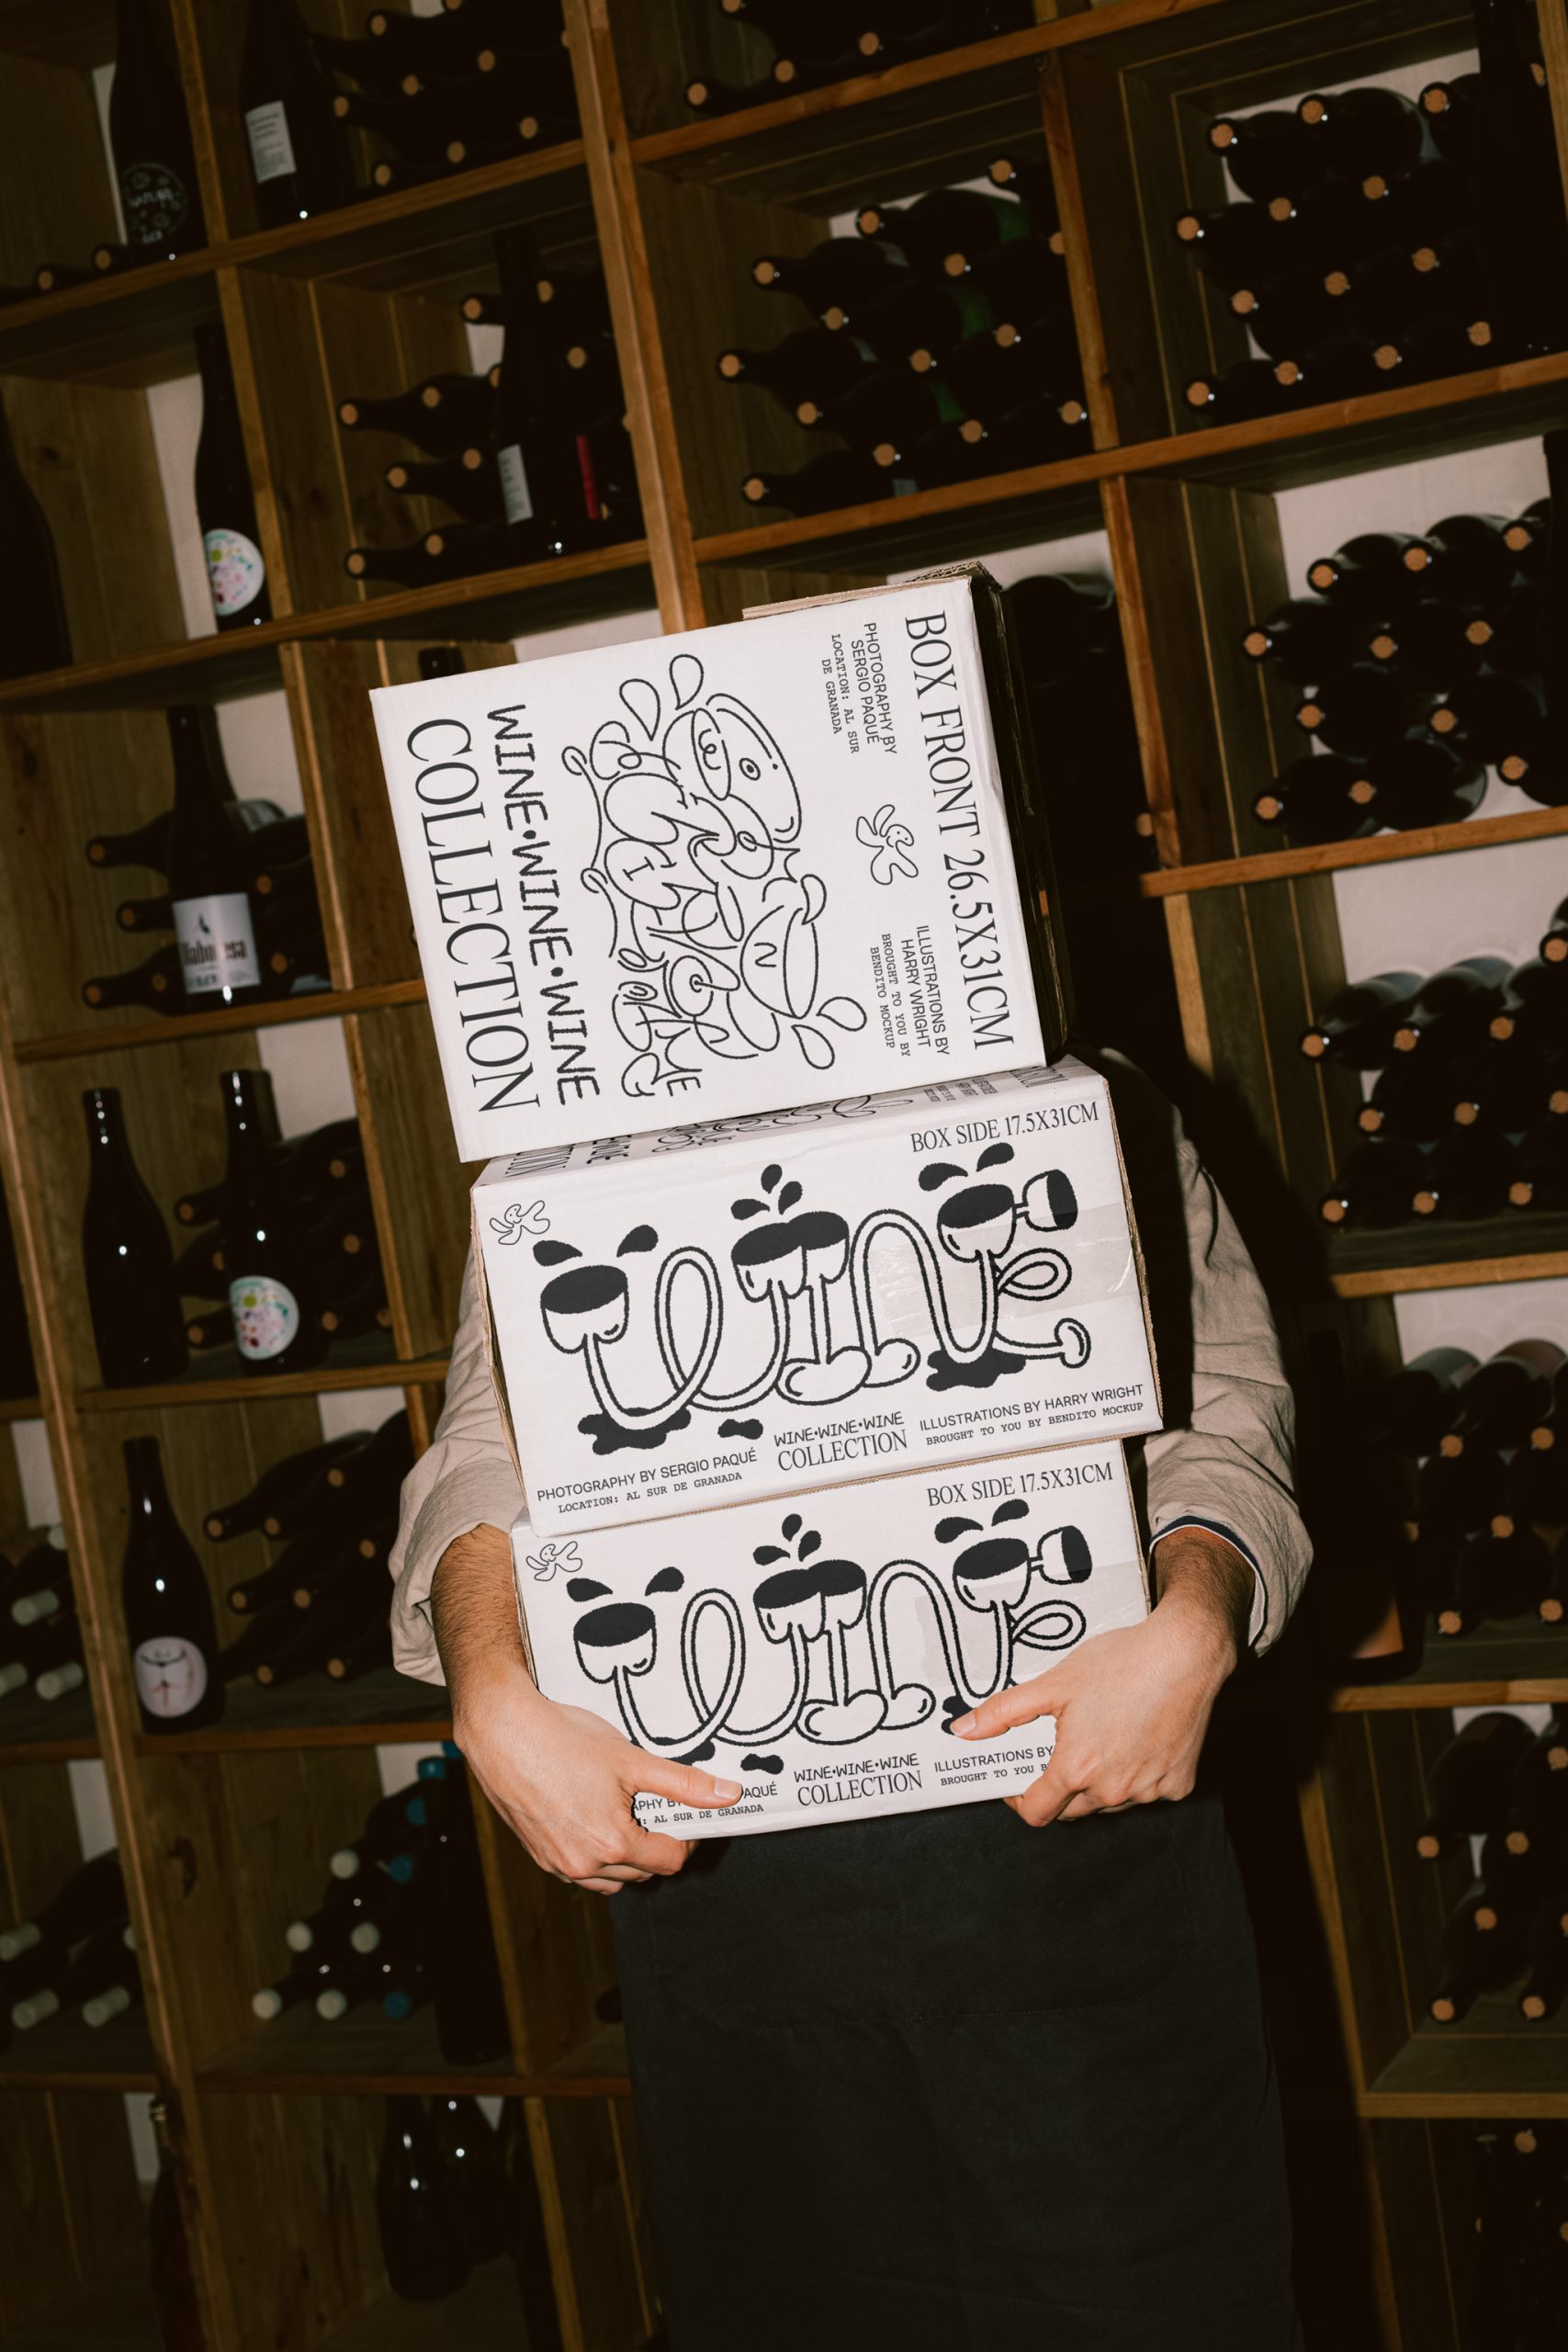 BOX FRONT 26.5X31CM
PHOTOGRAPHY BY
SERGIO PAQUÉ
LOCATION: AL SUR
DE GRANADA
ILLUSTRATIONS BY
HARRY WRIGHT
BROUGHT TO YOU BY
BENDITO MOCKUP
WINE•WINE•WINE
COLLECTION
BOX SIDE 17.5X31CM
WINE
PHOTOGRAPHY BY SERGIO PAQUÉ
LOCATION: AL SUR DE GRANADA
WINE•WINE•WINE
COLLECTION
ILLUSTRATIONS BY HARRY WRIGHT
BROUGHT TO YOU BY BENDITO MOCKUP
BOX SIDE 17.5X31CM
WINE
PAQUÉ
: AL SUR DE GRANADA
WINE•WINE•WINE
COLLECTION
ILLUSTRATIONS BY
BROUGHT TO YOU B